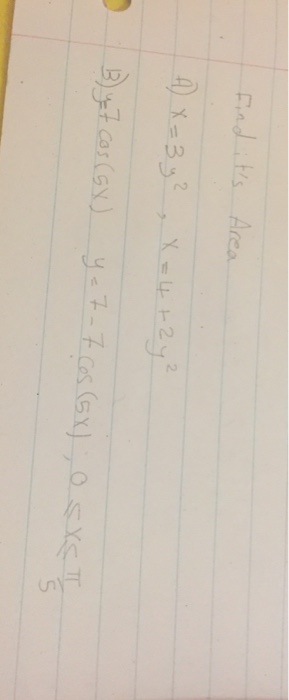 Find it's Area
A) x = 3y², x = 4 + 2y²
B) y=7 cos(5x) y = 7 - 7 cos(5x), 0 ≤ x ≤ π/5